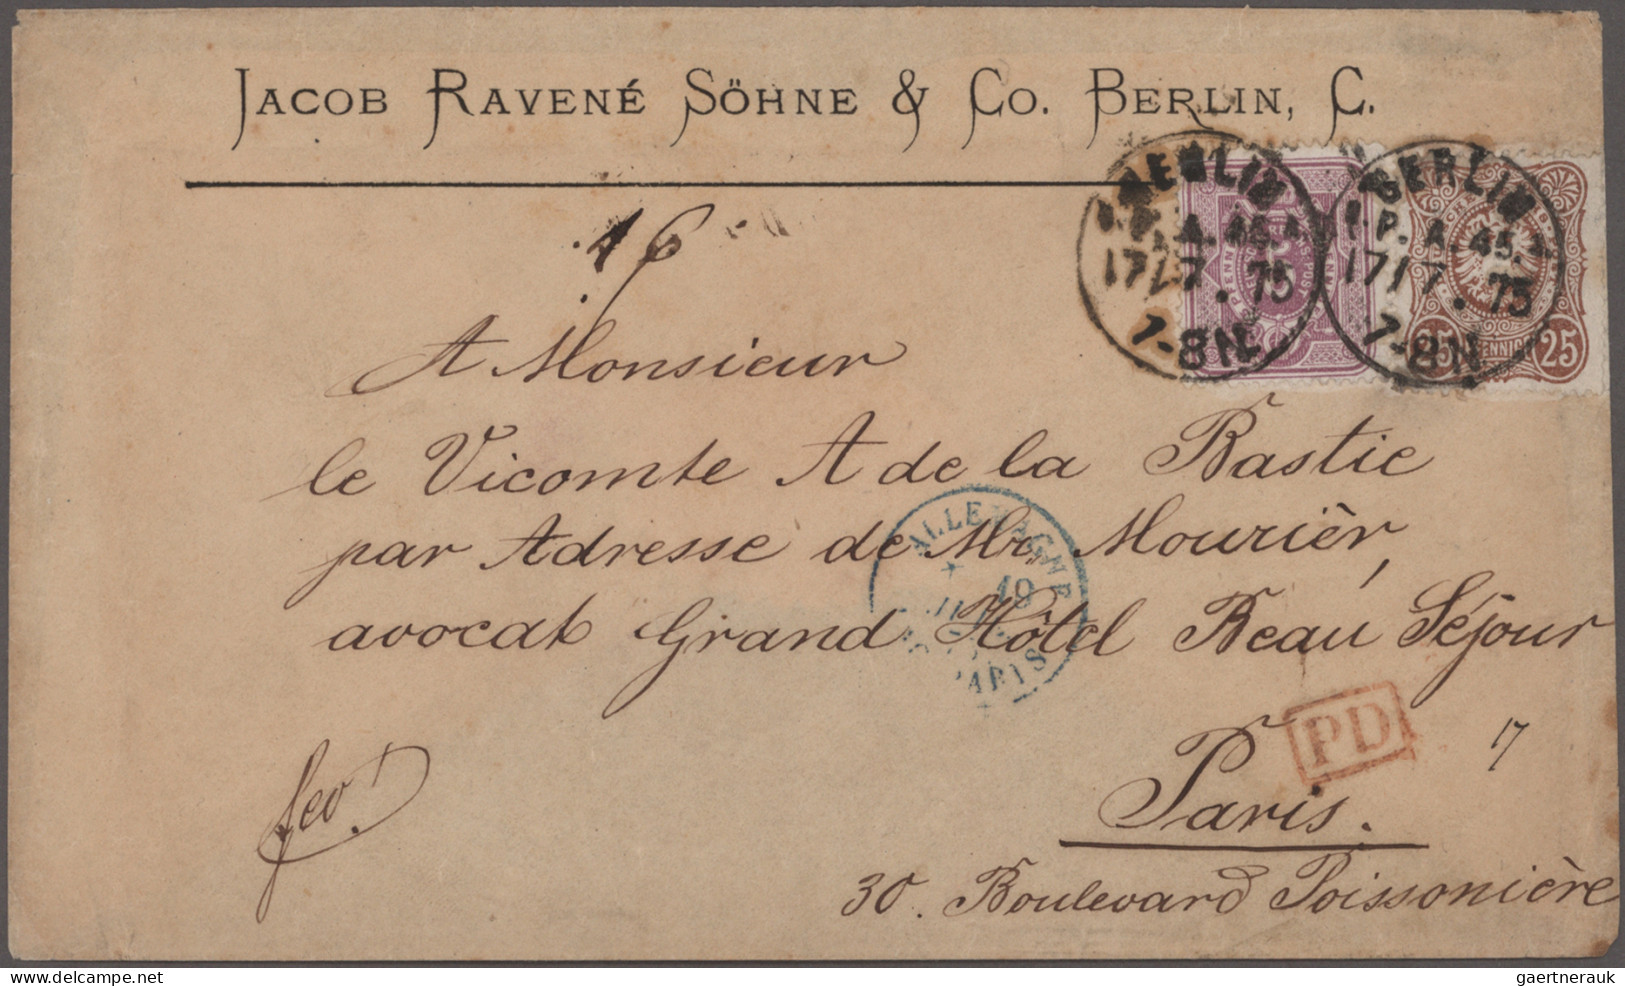 JACOB RAVENÉ SÖHNE & CO. BERLIN, C.
16
BERLIN
P. A. 45.
17/7. 75
7-8N.
BERLIN
P. A. 45.
17/7. 75
7-8N.
25 PFENNIGE 25
A Monsieur
le Vicomte A de la Bastie
par Adresse de Mr. Mourièr,
avocat Grand Hôtel Beau Séjour
ALLEMAGNE
19
PARIS
PD
17
Paris.
fco
30. Boulevard Poissonière
gaertnerauk